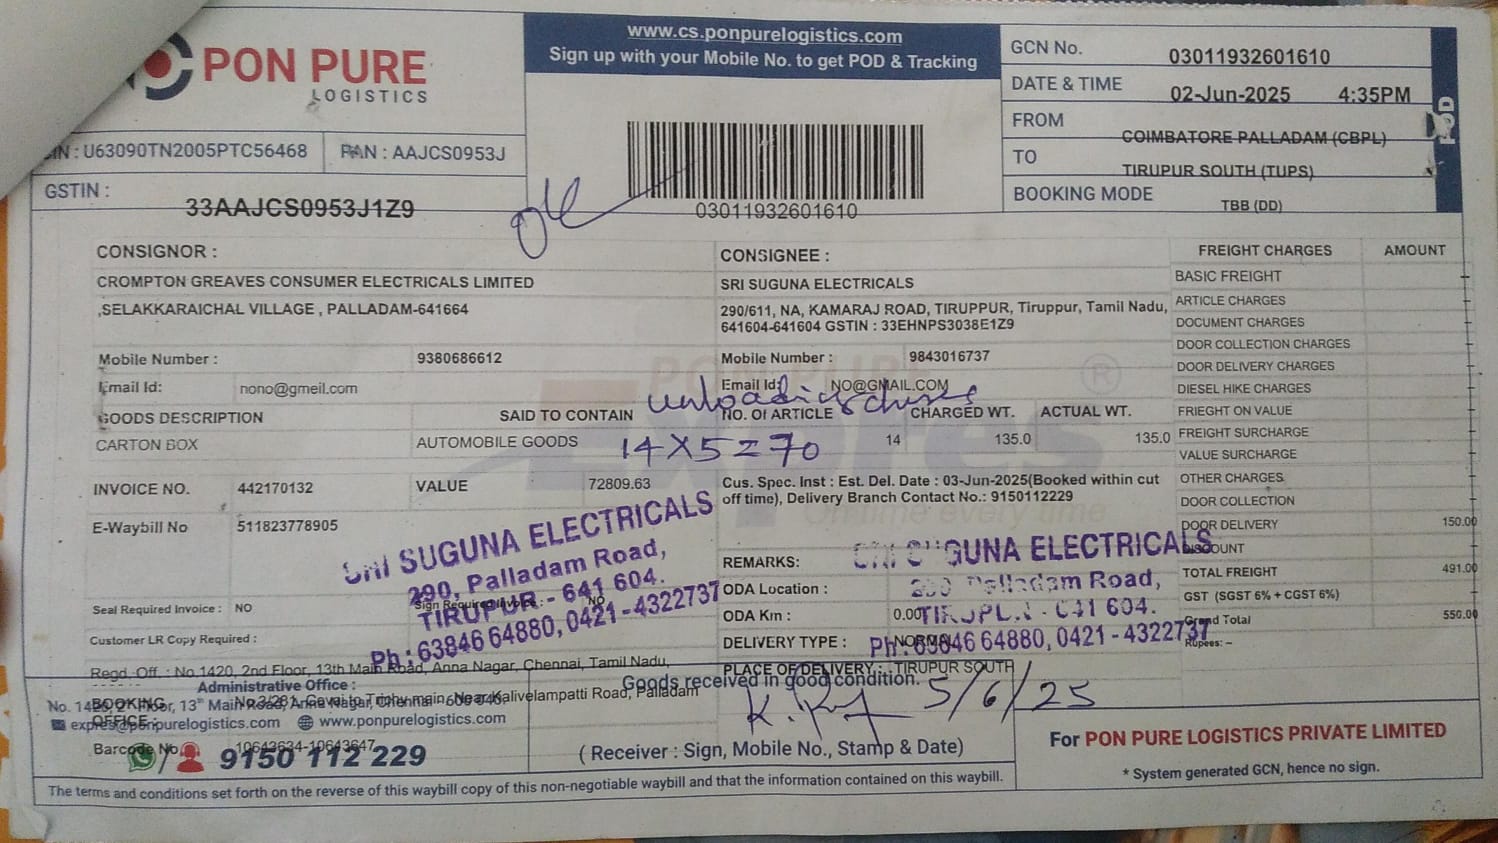 PON PURE
LOGISTICS
IN : U63090TN2005PTC56468
PAN : AAJCS0953J
GSTIN :
33AAJCS0953J1Z9
www.cs.ponpurelogistics.com
Sign up with your Mobile No. to get POD & Tracking
03011932601610
ok
GCN No. 03011932601610
DATE & TIME 02-Jun-2025 4:35PM
FROM COIMBATORE PALLADAM (CBPL)
TO TIRUPUR SOUTH (TUPS)
BOOKING MODE TBB (DD)
POD
CONSIGNOR :
CROMPTON GREAVES CONSUMER ELECTRICALS LIMITED
,SELAKKARAICHAL VILLAGE , PALLADAM-641664
Mobile Number : 9380686612
Email Id: nono@gmeil.com
CONSIGNEE :
SRI SUGUNA ELECTRICALS
290/611, NA, KAMARAJ ROAD, TIRUPPUR, Tiruppur, Tamil Nadu,
641604-641604 GSTIN : 33EHNPS3038E1Z9
Mobile Number : 9843016737
Email Id: NO@GMAIL.COM
unloading
GOODS DESCRIPTION SAID TO CONTAIN NO. Of ARTICLE CHARGED WT. ACTUAL WT.
CARTON BOX AUTOMOBILE GOODS 14 135.0 135.0
14X5=70
INVOICE NO. 442170132 VALUE 72809.63
E-Waybill No 511823778905
Cus. Spec. Inst : Est. Del. Date : 03-Jun-2025(Booked within cut
off time), Delivery Branch Contact No.: 9150112229
On time every time
SRI SUGUNA ELECTRICALS
290, Palladam Road,
TIRUPUR - 641 604.
Ph : 63846 64880, 0421 - 4322737
Seal Required Invoice : NO Sign Required Invoice : NO
Customer LR Copy Required :
REMARKS:
ODA Location :
ODA Km : 0.00
DELIVERY TYPE : NORMAL
PLACE OF DELIVERY : TIRUPUR SOUTH
SRI SUGUNA ELECTRICALS
290 Palladam Road,
TIRUPUR - 641 604.
Ph: 63846 64880, 0421 - 4322737
FREIGHT CHARGES AMOUNT
BASIC FREIGHT
ARTICLE CHARGES
DOCUMENT CHARGES
DOOR COLLECTION CHARGES
DOOR DELIVERY CHARGES
DIESEL HIKE CHARGES
FRIEGHT ON VALUE
FREIGHT SURCHARGE
VALUE SURCHARGE
OTHER CHARGES
DOOR COLLECTION
DOOR DELIVERY 150.00
DISCOUNT
TOTAL FREIGHT 491.00
GST (SGST 6% + CGST 6%)
Grand Total 550.00
Rupees: –
Regd -Off. : No 1420, 2nd Floor, 13th Main Road, Anna Nagar, Chennai, Tamil Nadu,
Administrative Office :
BOOKING
OFFICE :
expres@ponpurelogistics.com www.ponpurelogistics.com
Barcode No 10643634-10643647
9150 112 229
Goods received in good condition.
5/6/25
( Receiver : Sign, Mobile No., Stamp & Date)
For PON PURE LOGISTICS PRIVATE LIMITED
* System generated GCN, hence no sign.
The terms and conditions set forth on the reverse of this waybill copy of this non-negotiable waybill and that the information contained on this waybill.